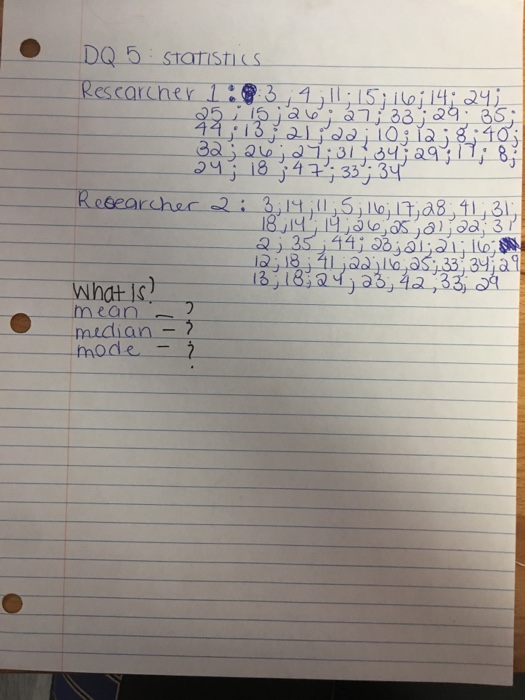 DQ 5: statistics
Researcher 1: 3; 4; 11; 15; 16; 14; 24;
25; 15; 26; 27; 33; 29; 35;
44; 13; 21; 22; 10; 12; 8; 40;
32; 26; 27; 31; 34; 29; 17; 8;
24; 18; 47; 33; 34
Researcher 2: 3, 14, 11, 5, 16, 17, 28, 41, 31;
18, 14, 14, 26, 25, 21, 22, 31
2; 35, 44; 23; 21; 21; 16;
12; 18, 41, 22; 16, 25; 33; 34; 29
13, 18; 24, 23; 42, 33; 29
What is?
mean - ?
median - ?
mode - ?